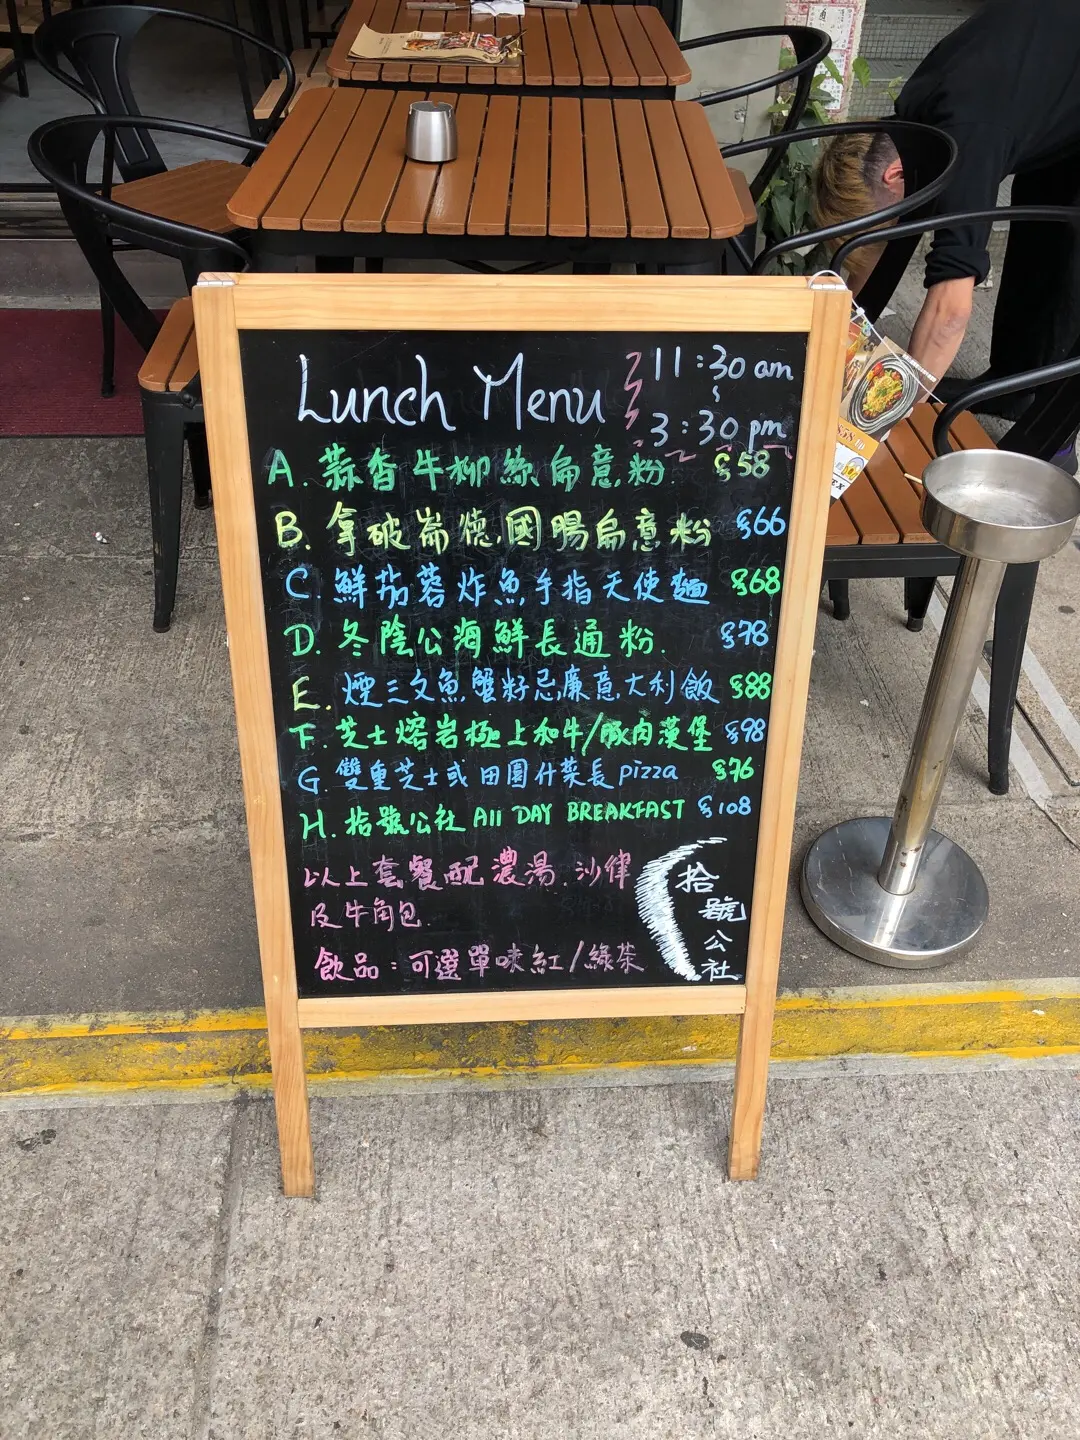 Lunch Menu
11:30 am
~
3:30 pm
A. 蒜香牛柳絲扁意粉. $58
B. 拿破崙德國腸扁意粉 $66
C. 鮮茄蓉炸魚手指天使麵 $68
D. 冬陰公海鮮長通粉. $78
E. 煙三文魚蟹籽忌廉意大利飯 $88
F. 芝士熔岩極上和牛/豚肉漢堡 $98
G. 雙重芝士或田園什菜長pizza $76
H. 拾號公社 All DAY BREAKFAST $108
以上套餐配濃湯.沙律
及牛角包
飲品：可選單味紅/綠茶
拾號公社